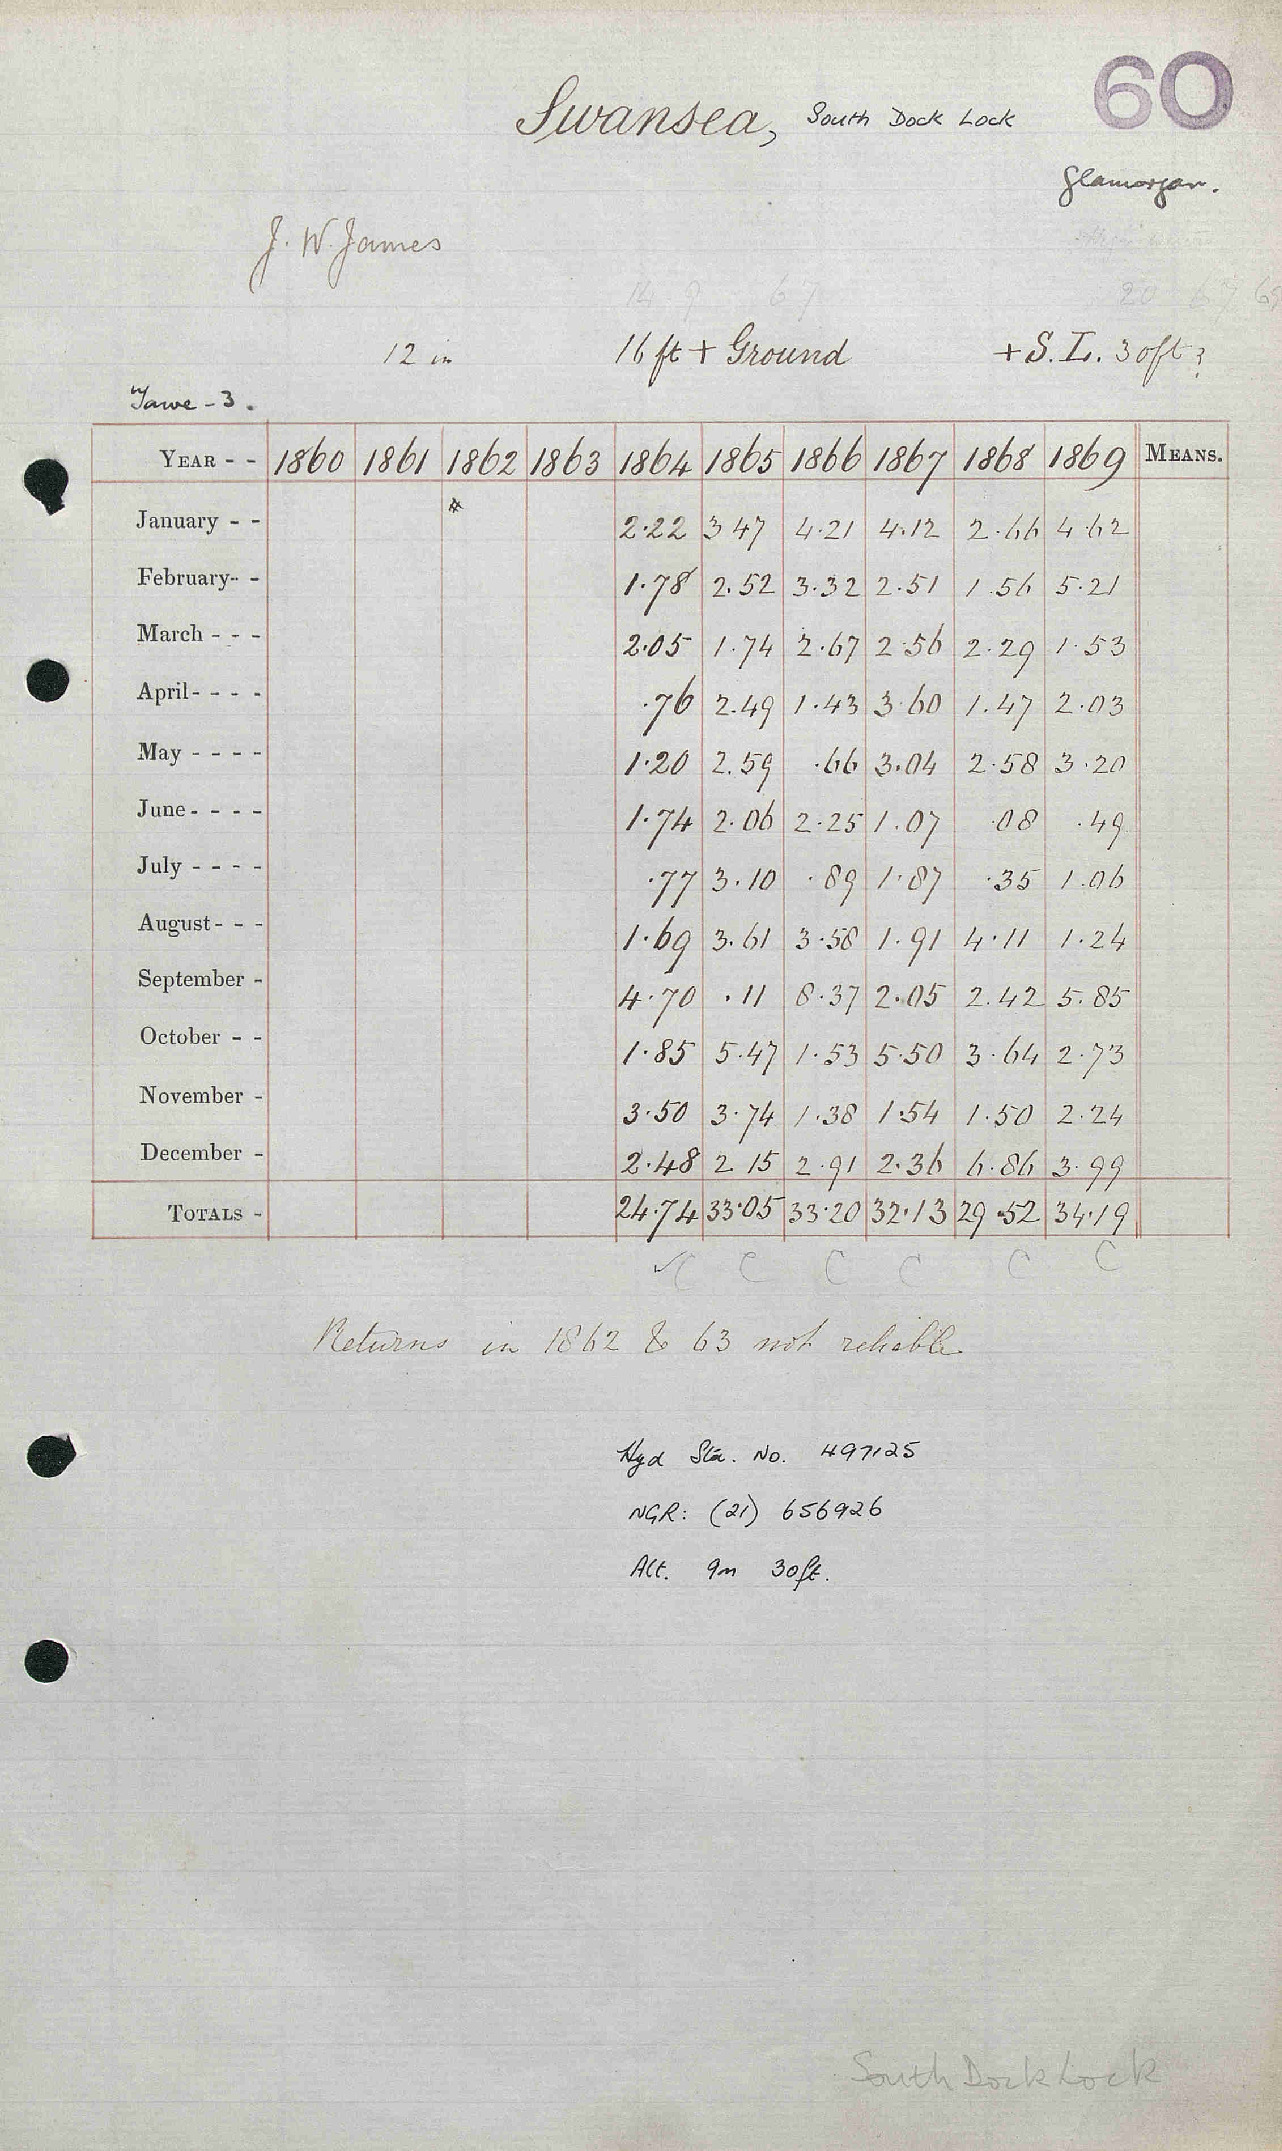 60
Swansea, South Dock Lock
Glamorgan.
J. W. James
14 9 67 20 67 69
12 in 16 ft + Ground + S. L. 30ft ?
Tawe - 3.
YEAR - - 1860 1861 1862 1863 1864 1865 1866 1867 1868 1869 MEANS.
*
January - - 2.22 3 47 4.21 4.12 2.66 4.62
February - - 1.78 2.52 3.32 2.51 1.56 5.21
March - - - 2.05 1.74 2.67 2.56 2.29 1.53
April - - - - .76 2.49 1.43 3.60 1.47 2.03
May - - - - 1.20 2.59 .66 3.04 2.58 3.20
June - - - - 1.74 2.06 2.25 1.07 .08 .49
July - - - - .77 3.10 .89 1.87 .35 1.06
August - - - 1.69 3.61 3.58 1.91 4.11 1.24
September - 4.70 .11 8.37 2.05 2.42 5.85
October - - 1.85 5.47 1.53 5.50 3.64 2.73
November - 3.50 3.74 1.38 1.54 1.50 2.24
December - 2.48 2.15 2.91 2.36 6.86 3.99
TOTALS - 24.74 33.05 33.20 32.13 29.52 34.19
✓C C C C C C
Returns in 1862 & 63 not reliable.
Hyd Sta. No. 497125
NGR: (21) 656926
Alt. 9m 30ft.
South Dock Lock